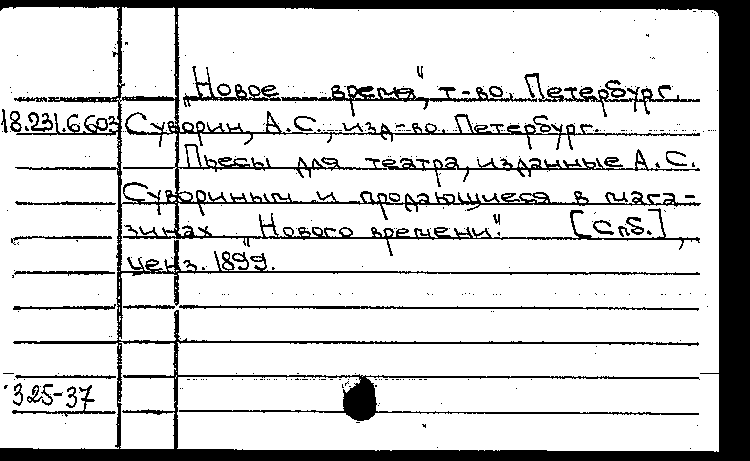 „Новое время“, т-во. Петербург.
18.231.6603 Суворин, А.С., изд-во. Петербург.
Пьесы для театра, изданные А.С.
Сувориным и продающиеся в мага-
зинах „Нового времени“. [Спб.],
ценз. 1899.
325-37